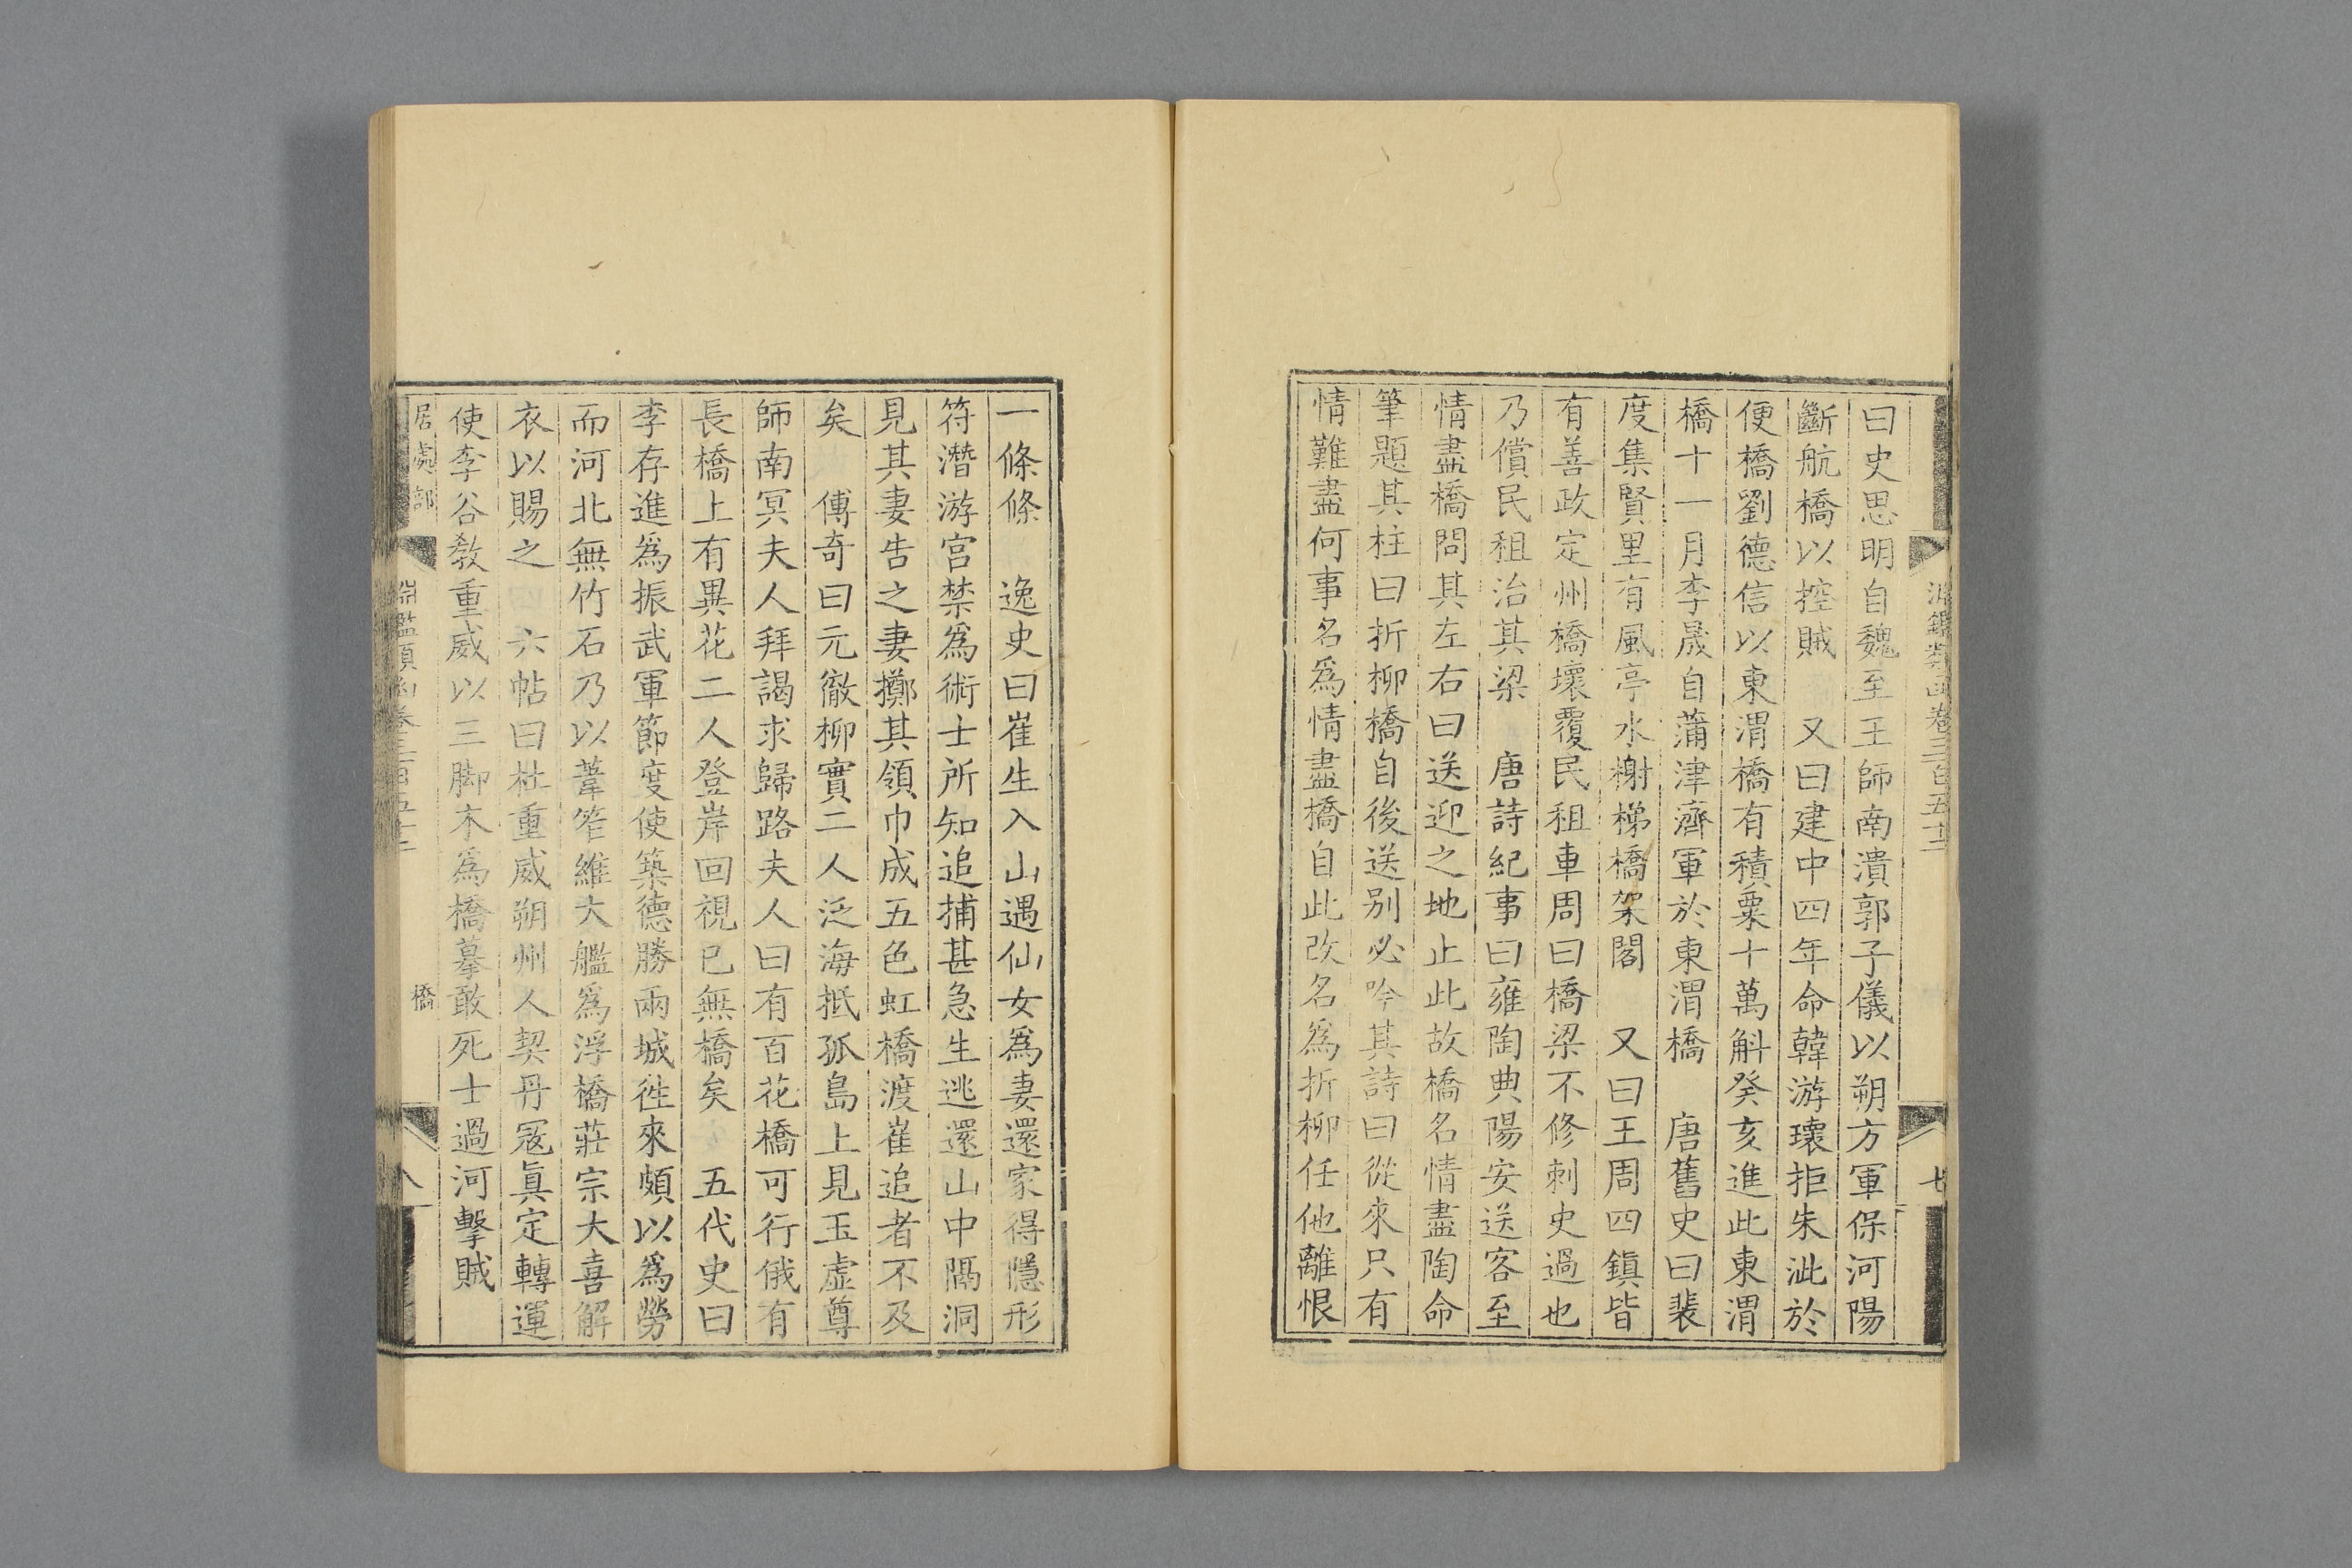 曰史思明自魏至王師南潰郭子儀以朔方軍保河陽
斷航橋以控賊　又曰建中四年命韓游瓌拒朱泚於
便橋劉德信以東渭橋有積粟十萬斛癸亥進此東渭
橋十一月李晟自蒲津濟軍於東渭橋　唐舊史曰裴
度集賢里有風亭水榭梯橋架閣　又曰王周四鎮皆
有善政定州橋壞覆民租車周曰橋梁不修刺史過也
乃償民租治其梁　唐詩紀事曰雍陶典陽安送客至
情盡橋問其左右曰送迎之地止此故橋名情盡陶命
筆題其柱曰折柳橋自後送别必吟其詩曰從來只有
情難盡何事名爲情盡橋自此改名爲折柳任他離恨
七
一條條　逸史曰崔生入山遇仙女爲妻還家得隱形
符潛游宫禁爲術士所知追捕甚急生逃還山中隔洞
見其妻告之妻擲其領巾成五色虹橋渡崔追者不及
矣　傳奇曰元徹柳實二人泛海抵孤島上見玉虛尊
師南冥夫人拜謁求歸路夫人曰有百花橋可行俄有
長橋上有異花二人登岸回視已無橋矣　五代史曰
李存進爲振武軍節度使築德勝兩城徃來頗以爲勞
而河北無竹石乃以葦笮維大艦爲浮橋莊宗大喜解
衣以賜之　六帖曰杜重威朔州人契丹寇眞定轉運
使李谷敎重威以三脚木爲橋募敢死士過河擊賊
居處部　橋
八